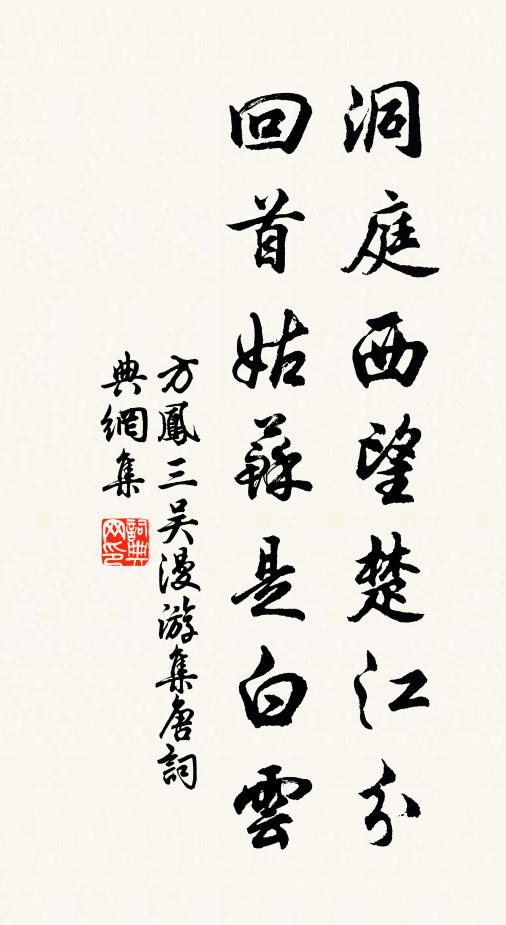 洞庭西望楚江分
回首姑蘇是白雲
方鳳三吴漫游集唐詞
典網集
詞典
网印